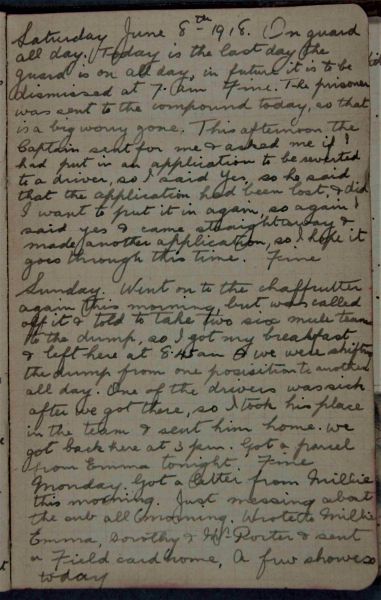 Saturday June 8th 1918. On guard
all day. Today is the last day the
guard is on all day, in future it is to be
dismissed at 7. am Fine. The prisoner
was sent to the compound today, so that
is a big worry gone. This afternoon the
Captain sent for me & asked me if I
had put in an application to be reverted
to a driver, so I said Yes, so he said
that the application had been lost, & did
I want to put it in again, so again I
said yes & came straight away &
made another application, so I hope it
goes through this time. Fine
Sunday. Went on to the chaffcutter
again this morning, but was called
off it & told to take two six mule teams
to the dump, so I got my breakfast
& left here at 8.45 am & we were shifting
the dump from one posisition to another
all day. One of the drivers was sick
after we got there, so I took his place
in the team & sent him home. We
got back here at 3 pm Got a parcel
from Emma tonight. Fine
Monday. Got a letter from Millie
this morning. Just messing about
the all morning. Wrote to Millie
Emma, Dorothy & Mrs Porter & sent
a Field card home, A few showers
today